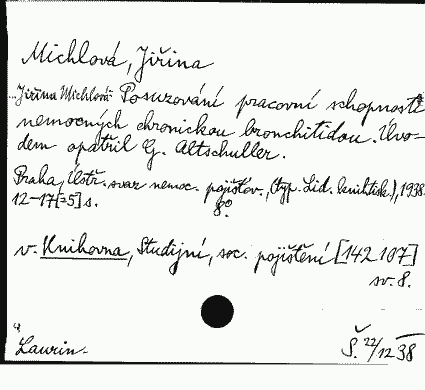 Michlová, Jiřina
...Jiřina Michlová: Posuzování pracovní schopnosti
nemocných chronickou bronchitidou. Úvo-
dem opatřil G. Altschuller.
Praha, Ústř. svaz nemoc. pojišťov., (typ. Lid. knihtisk.), 1938.
12-17[=5] s. 8°.
v. Knihovna, Studijní, soc. pojištění [142 107]
sv. 8.
Laurin.
Š. 22/12 38